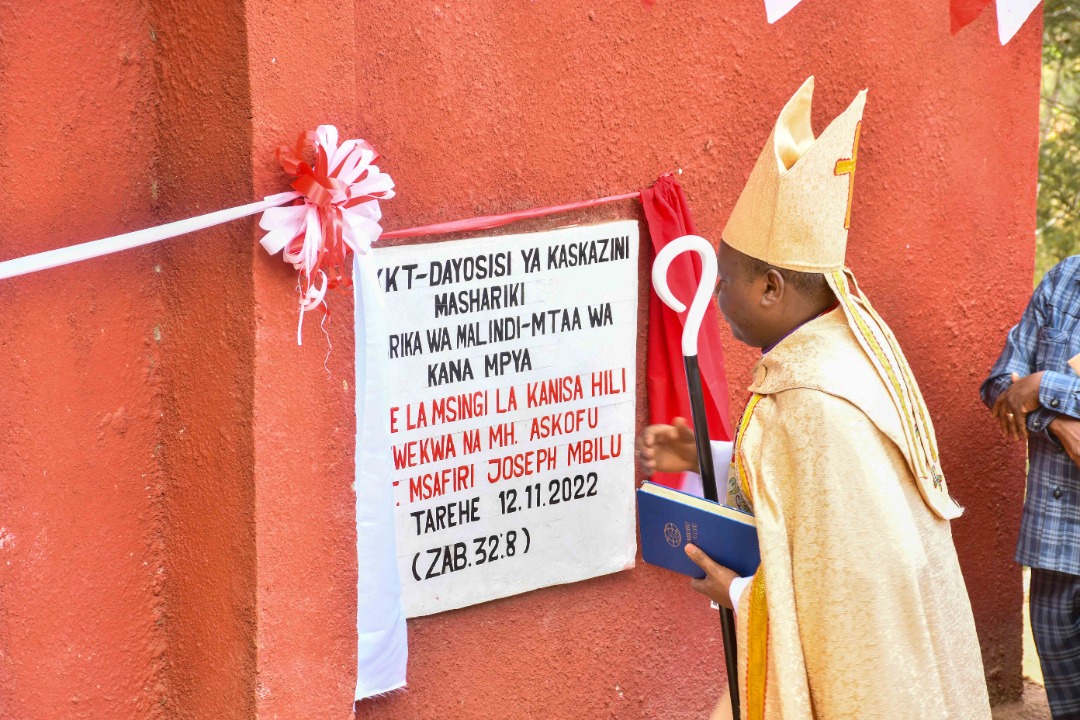 KKT-DAYOSISI YA KASKAZINI
MASHARIKI
RIKA WA MALINDI-MTAA WA
KANA MPYA
E LA MSINGI LA KANISA HILI
WEKWA NA MH. ASKOFU
MSAFIRI JOSEPH MBILU
TAREHE 12.11.2022
(ZAB.32:8)